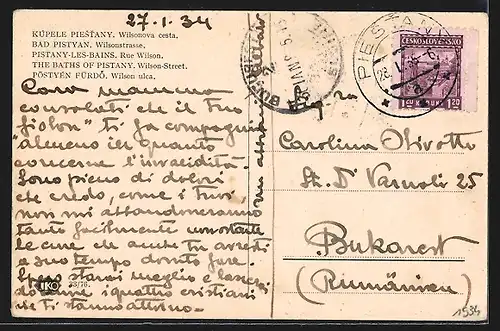 27.1.34
KÚPELE PIEŠŤANY. Wilsonova cesta.
BAD PISTYAN. Wilsonstrasse.
PISTANY-LES-BAINS. Rue Wilson.
THE BATHS OF PISTANY. Wilson-Street.
PÖSTYÉN FÜRDŐ. Wilson ulca.
Cara mamma
consolati che il tuo
"fiolon" ti fa compagnia
"almeno in quanto
concerne l'invalidità.
Sono pieno di dolori
che credo, come i tuoi,
non mi abbandoneranno
tanto facilmente nonostante
le cure che anche tu avresti
a suo tempo dovuto fare.
Spero starai meglio e
che ti stanno attorno.
ČESKOSLOVENSKO
1.20 KORUNY 1.20
PIEŠŤANY
Carolina Olivotto
Str. Dr Varnoli 25
Bukarest
(Rumänien)
1934